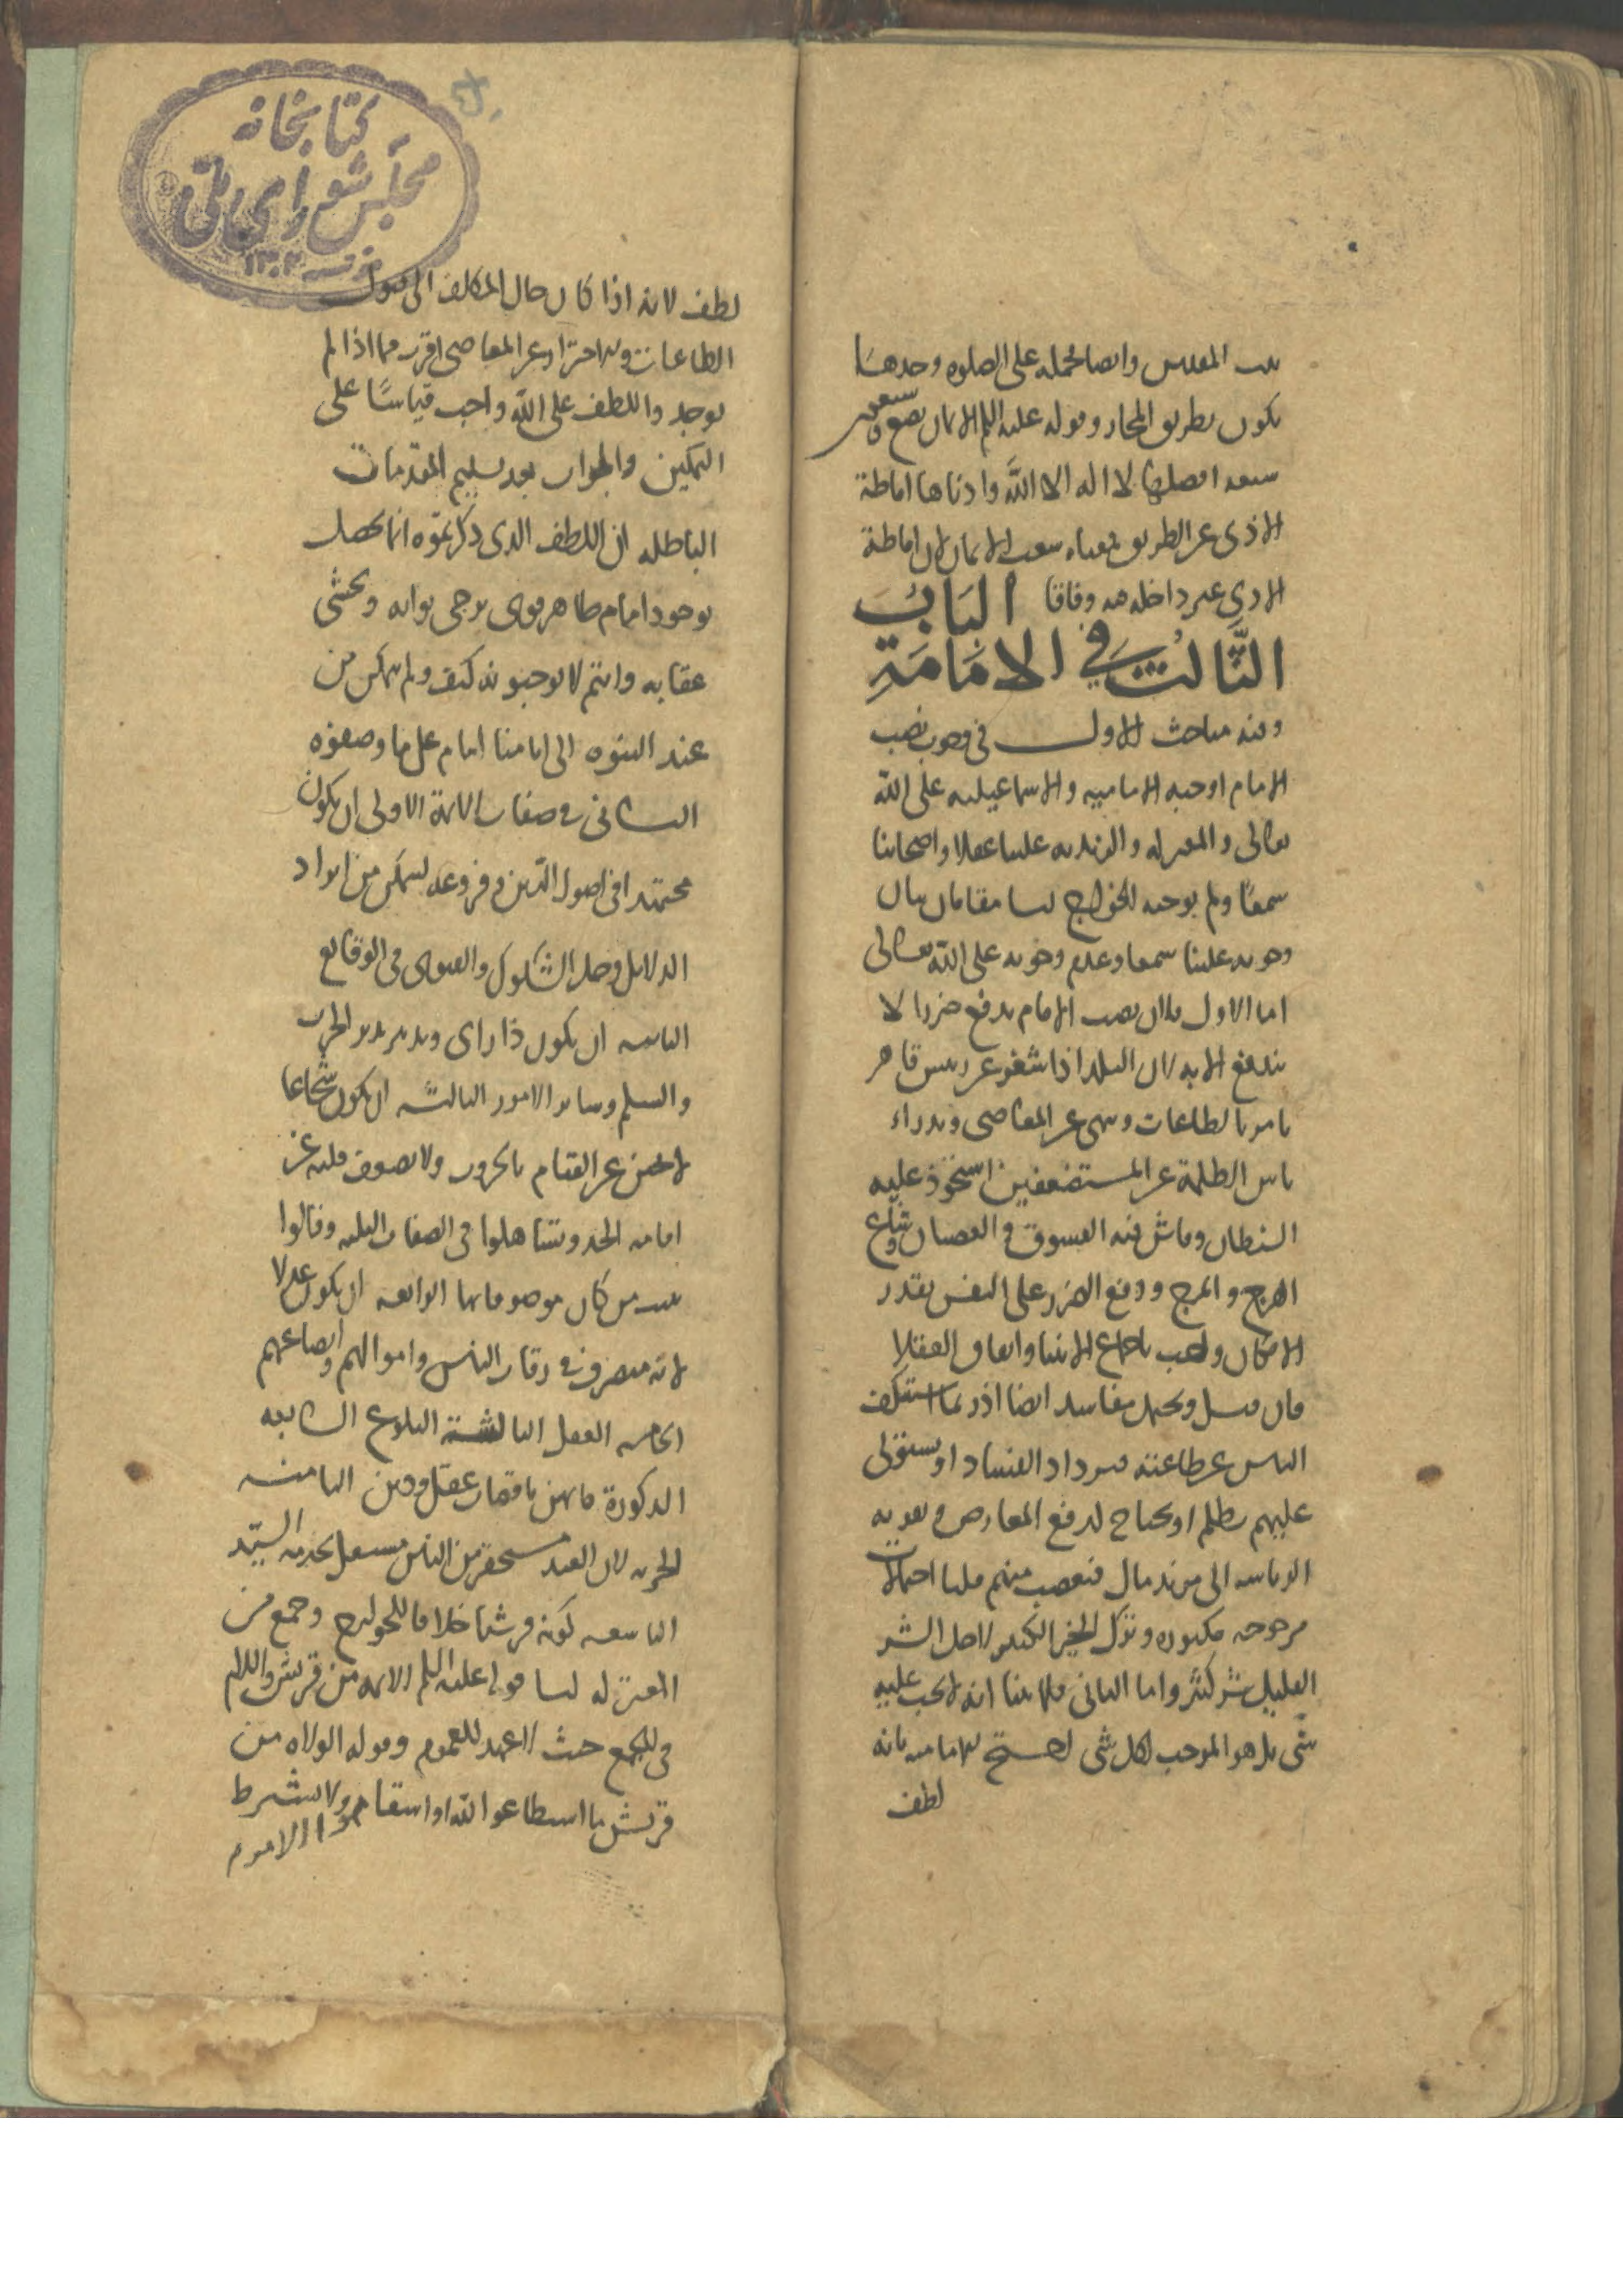 بيت المقدس وايضا فحمله على الصلوة وحدها
يكون بطريق المجاز وقوله عليه السلم الايمان بضع وسبعون
شعبة افضلها لا اله الا الله وادناها اماطة
الاذى عن الطريق معناه شعب الايمان لان اماطة
الاذى غير داخلة فيه وفاقا الباب
الثالث في الامامة
وفيه مباحث الاول في وجوب نصب
الامام اوجبه الامامية والاسماعيلية على الله
تعالى والمعتزلة والزيدية علينا عقلا واصحابنا
سمعًا ولم يوجبه الخوارج لنا مقامان بيان
وجوبه علينا سمعا وعدم وجوبه على الله تعالى
اما الاول فلان نصب الامام يدفع ضررا لا
يندفع الا به لان البلد اذا شغر عن رئيس قاهر
يامر بالطاعات وينهى عن المعاصي ويدراء
باس الظلمة عن المستضعفين استحوذ عليه
الشيطان وفاش فيه الفسوق والعصيان وشاع
الهرج والمرج ودفع الضرر على النفس بقدر
الامكان واجب باجماع الانبيا واتفاق العقلا
فان قيل ويحتمل مفاسد ايضا اذ ربما استنكف
الناس عن طاعته فيزداد الفساد او يستولى
عليهم بظلم او يحتاج لدفع المعارض وتقوية
الرياسة الى مزيد مال فيغصب منهم قلنا احتمالات
مرجوحة مكثورة وترك الخير الكثير لاجل الشر
القليل شر كثير واما الثاني فلما بينا انه لا يجب عليه
شي بل هو الموجب لكل شي احتج الامامية بانه
لطف
كتابخانه
مجلس شوراى ملى
١٣٠٢
لطف لانه اذا كان حال المكلف الى قبول
الطاعات والاحتراز عن المعاصي اقرب مما اذا لم
يوجد واللطف على الله واجب قياسًا على
التمكين والجواب بعد تسليم المقدمات
الباطلة ان اللطف الذى ذكرتموه انما يحصل
بوجود امام ظاهر قوى يرجى ثوابه ويخشى
عقابه وانتم لا توجبونه كيف ولم يتمكن من
عند النبوة الى ايامنا امام على ما وصفوه
الثاني في صفات الائمة الاولى ان يكون
مجتهدا في اصول الدين وفروعه ليتمكن من ايراد
الدلايل وحل الشكوك والفتوى في الوقايع
الثانية ان يكون ذا راى وتدبير يدبر الحرب
والسلم وساير الامور الثالثة ان يكون شجاعا
لا يجبن عن القيام بالحروب ولا يضعف قلبه عن
اقامة الحد وتساهلوا في الصفات الثلثة وقالوا
ينيب من كان موصوفا بها الرابعة ان يكون عدلا
لانه متصرف في رقاب الناس واموالهم وابضاعهم
الخامسة العقل السادسة البلوغ السابعة
الذكورة فانهن ناقصات عقل ودين الثامنة
الحرية لان العبد مستحقر بين الناس مشتغل بخدمة السيد
التاسعة كونه قرشيا خلافا للخوارج وجمع من
المعتزلة لنا قوله عليه السلم الائمة من قريش واللام
في الجمع حيث لا عهد للعموم وقوله الولاة من
قريش ما اطاعوا الله واستقاموا ولا يشترط
الامر